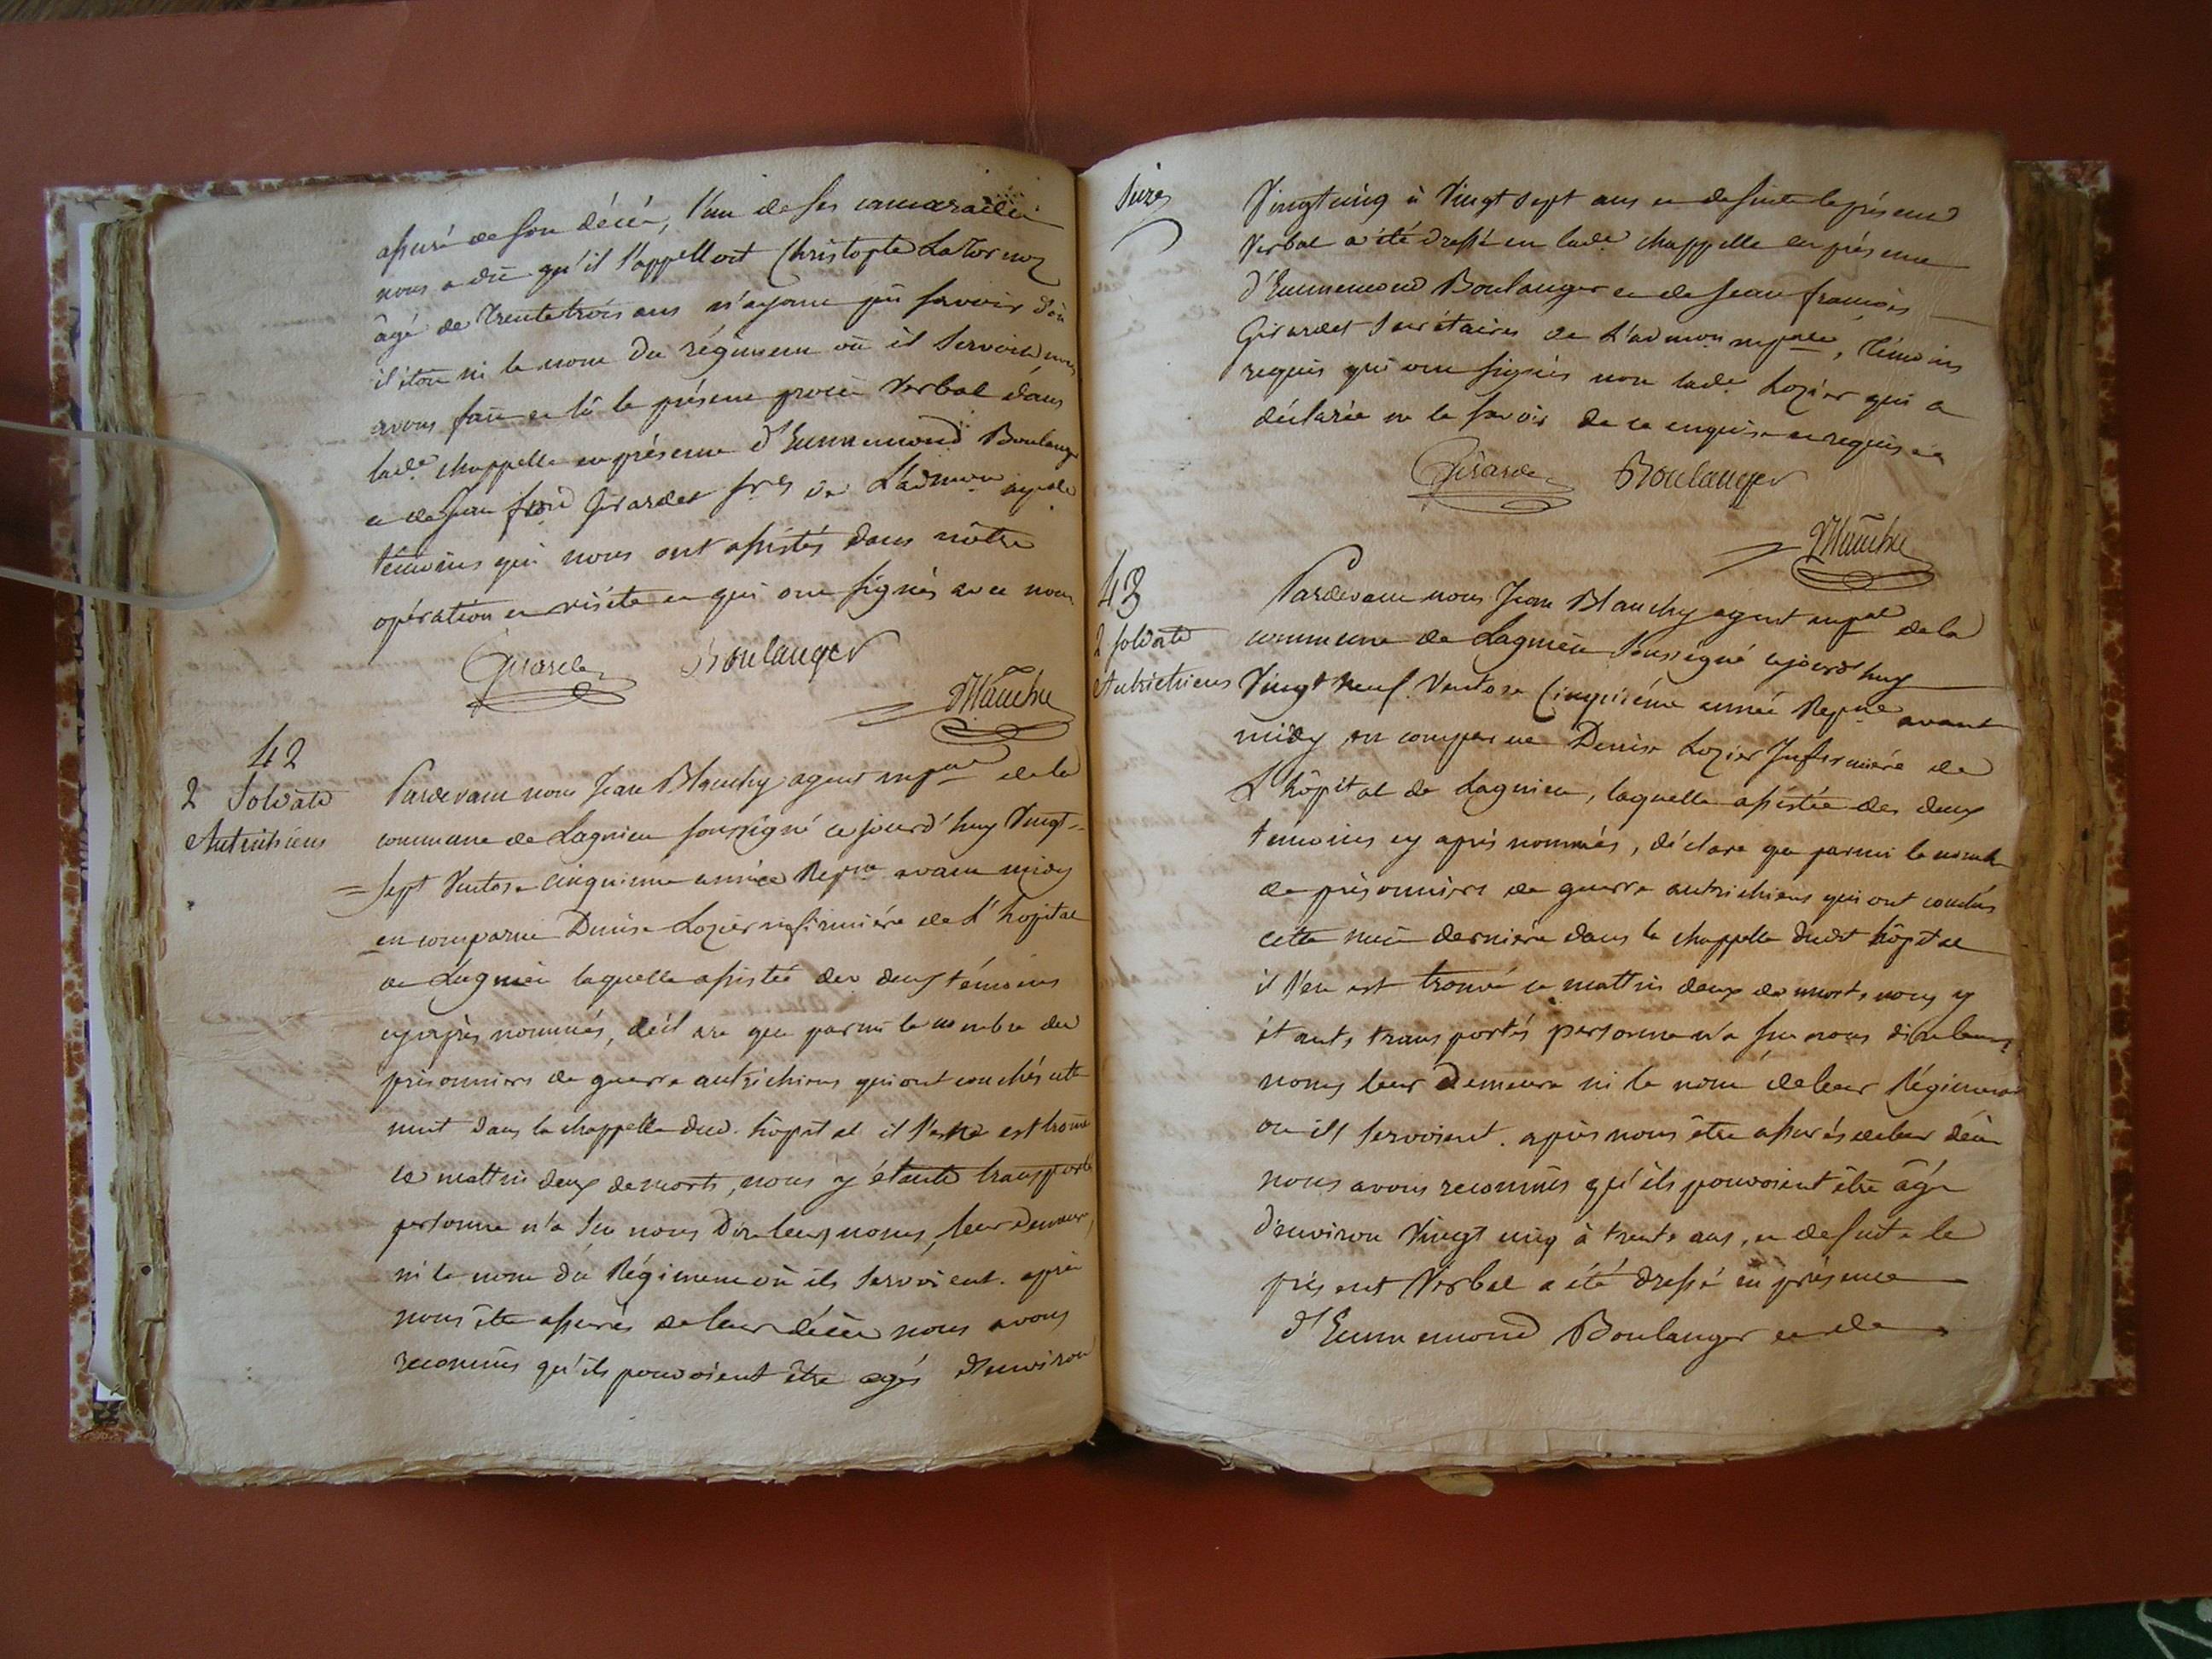 assuré de son décés, l'un de ses camarades
nous a dit qu'il s'appelloit Christophe Latornoz
âgé de trente trois ans n'ayant pû savoir d'où
il étoit ni le nom du régiment où il servoit nous
avons fait et lû le présent procés verbal dans
lade chappelle en présence d'Ennemond Boulanger
et de Jean frois Girardet sres de L'admon mpale
témoins qui nous ont assistés dans nôtre
opération et visite et qui ont signés avec nous
Girardet Boulanger
Blanchy
42
2 Soldats
Autrichiens
Pardevant nous Jean Blanchy agent mpal de la
commune de Lagnieu soussigné ce jourd'huy Vingt=
=sept Ventose cinquieme année Repne avant midy
est comparue Denise Lozier infirmiére de L'hopital
de Lagnieu laquelle assistée des deux témoins
cy après nommés, déclare que parmi le nombre des
prisonniers de guerre autrichiens qui ont couchés cette
nuit dans la chappelle dud. hôpital il s'en est trouvé
ce mattin deux de morts, nous y étants transportés
personne n'a su nous dire leurs noms, leur demeure,
ni le nom du Régiment où ils servoient. après
nous être assurés de leur décés nous avons
reconnus qu'ils pouvoient être agés d'environ
Vingt cinq à Vingt sept ans et de suite le présent
Verbal a été dressé en lade chappelle en présence
d'Ennemond Boulanger et de Jean françois
Girardet secrétaires de L'admon mpale, témoins
requis qui ont signés non lade Lozier qui a
déclarée ne le savoir de ce enquise et requise
Girardet Boulanger
Blanchy
43
2 soldats
Autrichiens
Pardevant nous Jean Blanchy agent mpal de la
commune de Lagnieu soussigné cejourd'huy
Vingt neuf Ventose Cinquiéme année Repne avant
midy est comparue Denise Lozier Infirmiére de
L'hôpital de Lagnieu, laquelle assistée des deux
temoins cy aprés nommés, déclare que parmi le nombre
de prisonniers de guerre autrichiens qui ont couchés
cette nuit derniére dans la chappelle dudt hôpital
il s'en est trouvé ce mattin deux de morts, nous y
étants transportés personne n'a su nous dire leurs
noms leur demeure ni le nom de leur Régiment
ou ils servoient. après nous être assurés de leur décés
nous avons reconnûs qu'ils pouvoient être âgé
d'environ Vingt cinq à trente ans, et de suite le
présent Verbal a été dressé en présence
d'Ennemond Boulanger et de